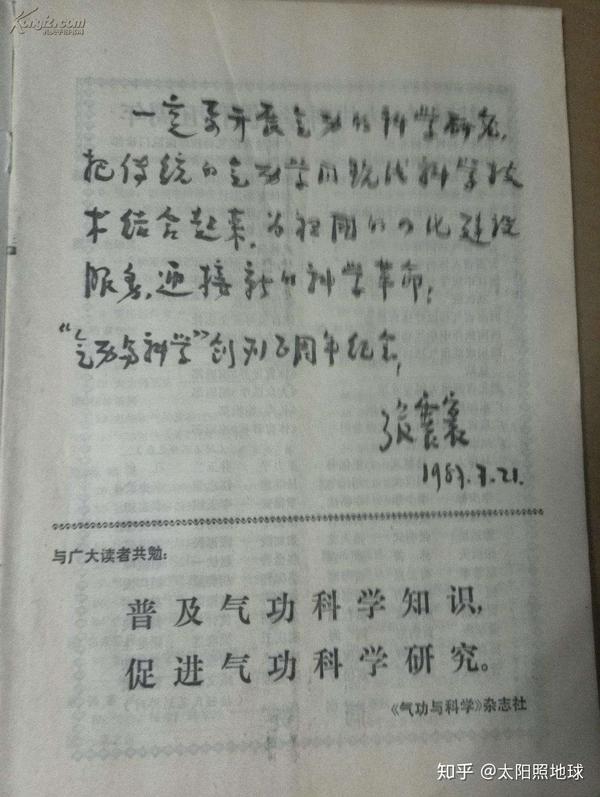 Kongfz.com
一定要开展气功的科学研究，
把传统的气功学同现代科学技
术结合起来，为祖国的四化建设
服务，迎接新的科学革命；
“气功与科学”创刊五周年纪念，
张震寰
1987.7.21.
与广大读者共勉：
普及气功科学知识，
促进气功科学研究。
《气功与科学》杂志社
知乎 @太阳照地球